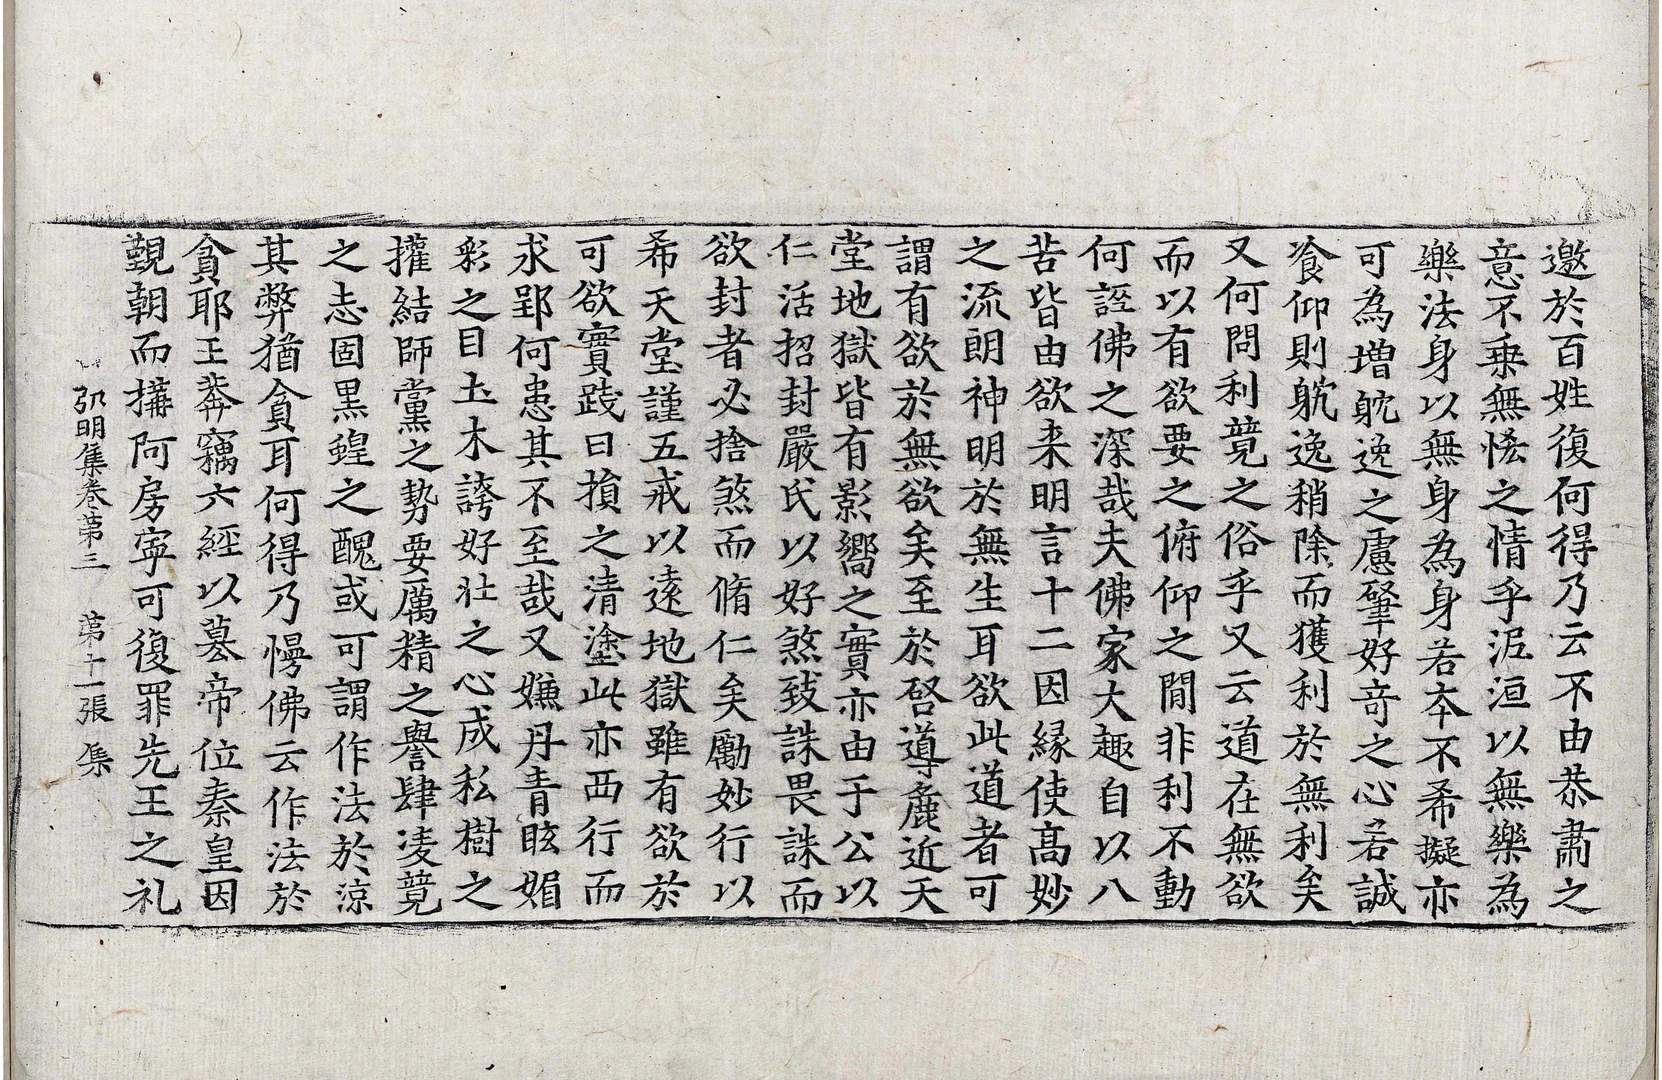 邀於百姓復何得乃云不由恭肅之
意不乗無悋之情乎泥洹以無樂為
樂法身以無身為身若夲不希擬亦
可為增躭逸之慮肈好竒之心若誠
飡仰則躭逸稍除而獲利於無利矣
又何問利競之俗乎又云道在無欲
而以有欲要之俯仰之閒非利不動
何誣佛之深哉夫佛家大趣自以八
苦皆由欲来明言十二因緣使髙妙
之流朗神明於無生耳欲此道者可
謂有欲於無欲矣至於啓導麁近天
堂地獄皆有影嚮之實亦由于公以
仁活招封嚴氏以好煞致誅畏誅而
欲封者必捨煞而脩仁矣勵妙行以
希天堂謹五戒以逺地獄雖有欲於
可欲實踐日損之清塗此亦西行而
求郢何患其不至哉又嫌丹青眩媚
彩之目土木誇好壮之心成私樹之
㩲結師黨之勢要厲精之譽肆凌競
之志固黒蝗之醜或可謂作法於涼
其弊猶貪耳何得乃慢佛云作法於
貪耶王莾竊六經以簒帝位秦皇因
覲朝而搆阿房寕可復罪先王之礼
弘明集巻苐三　苐十一張　集